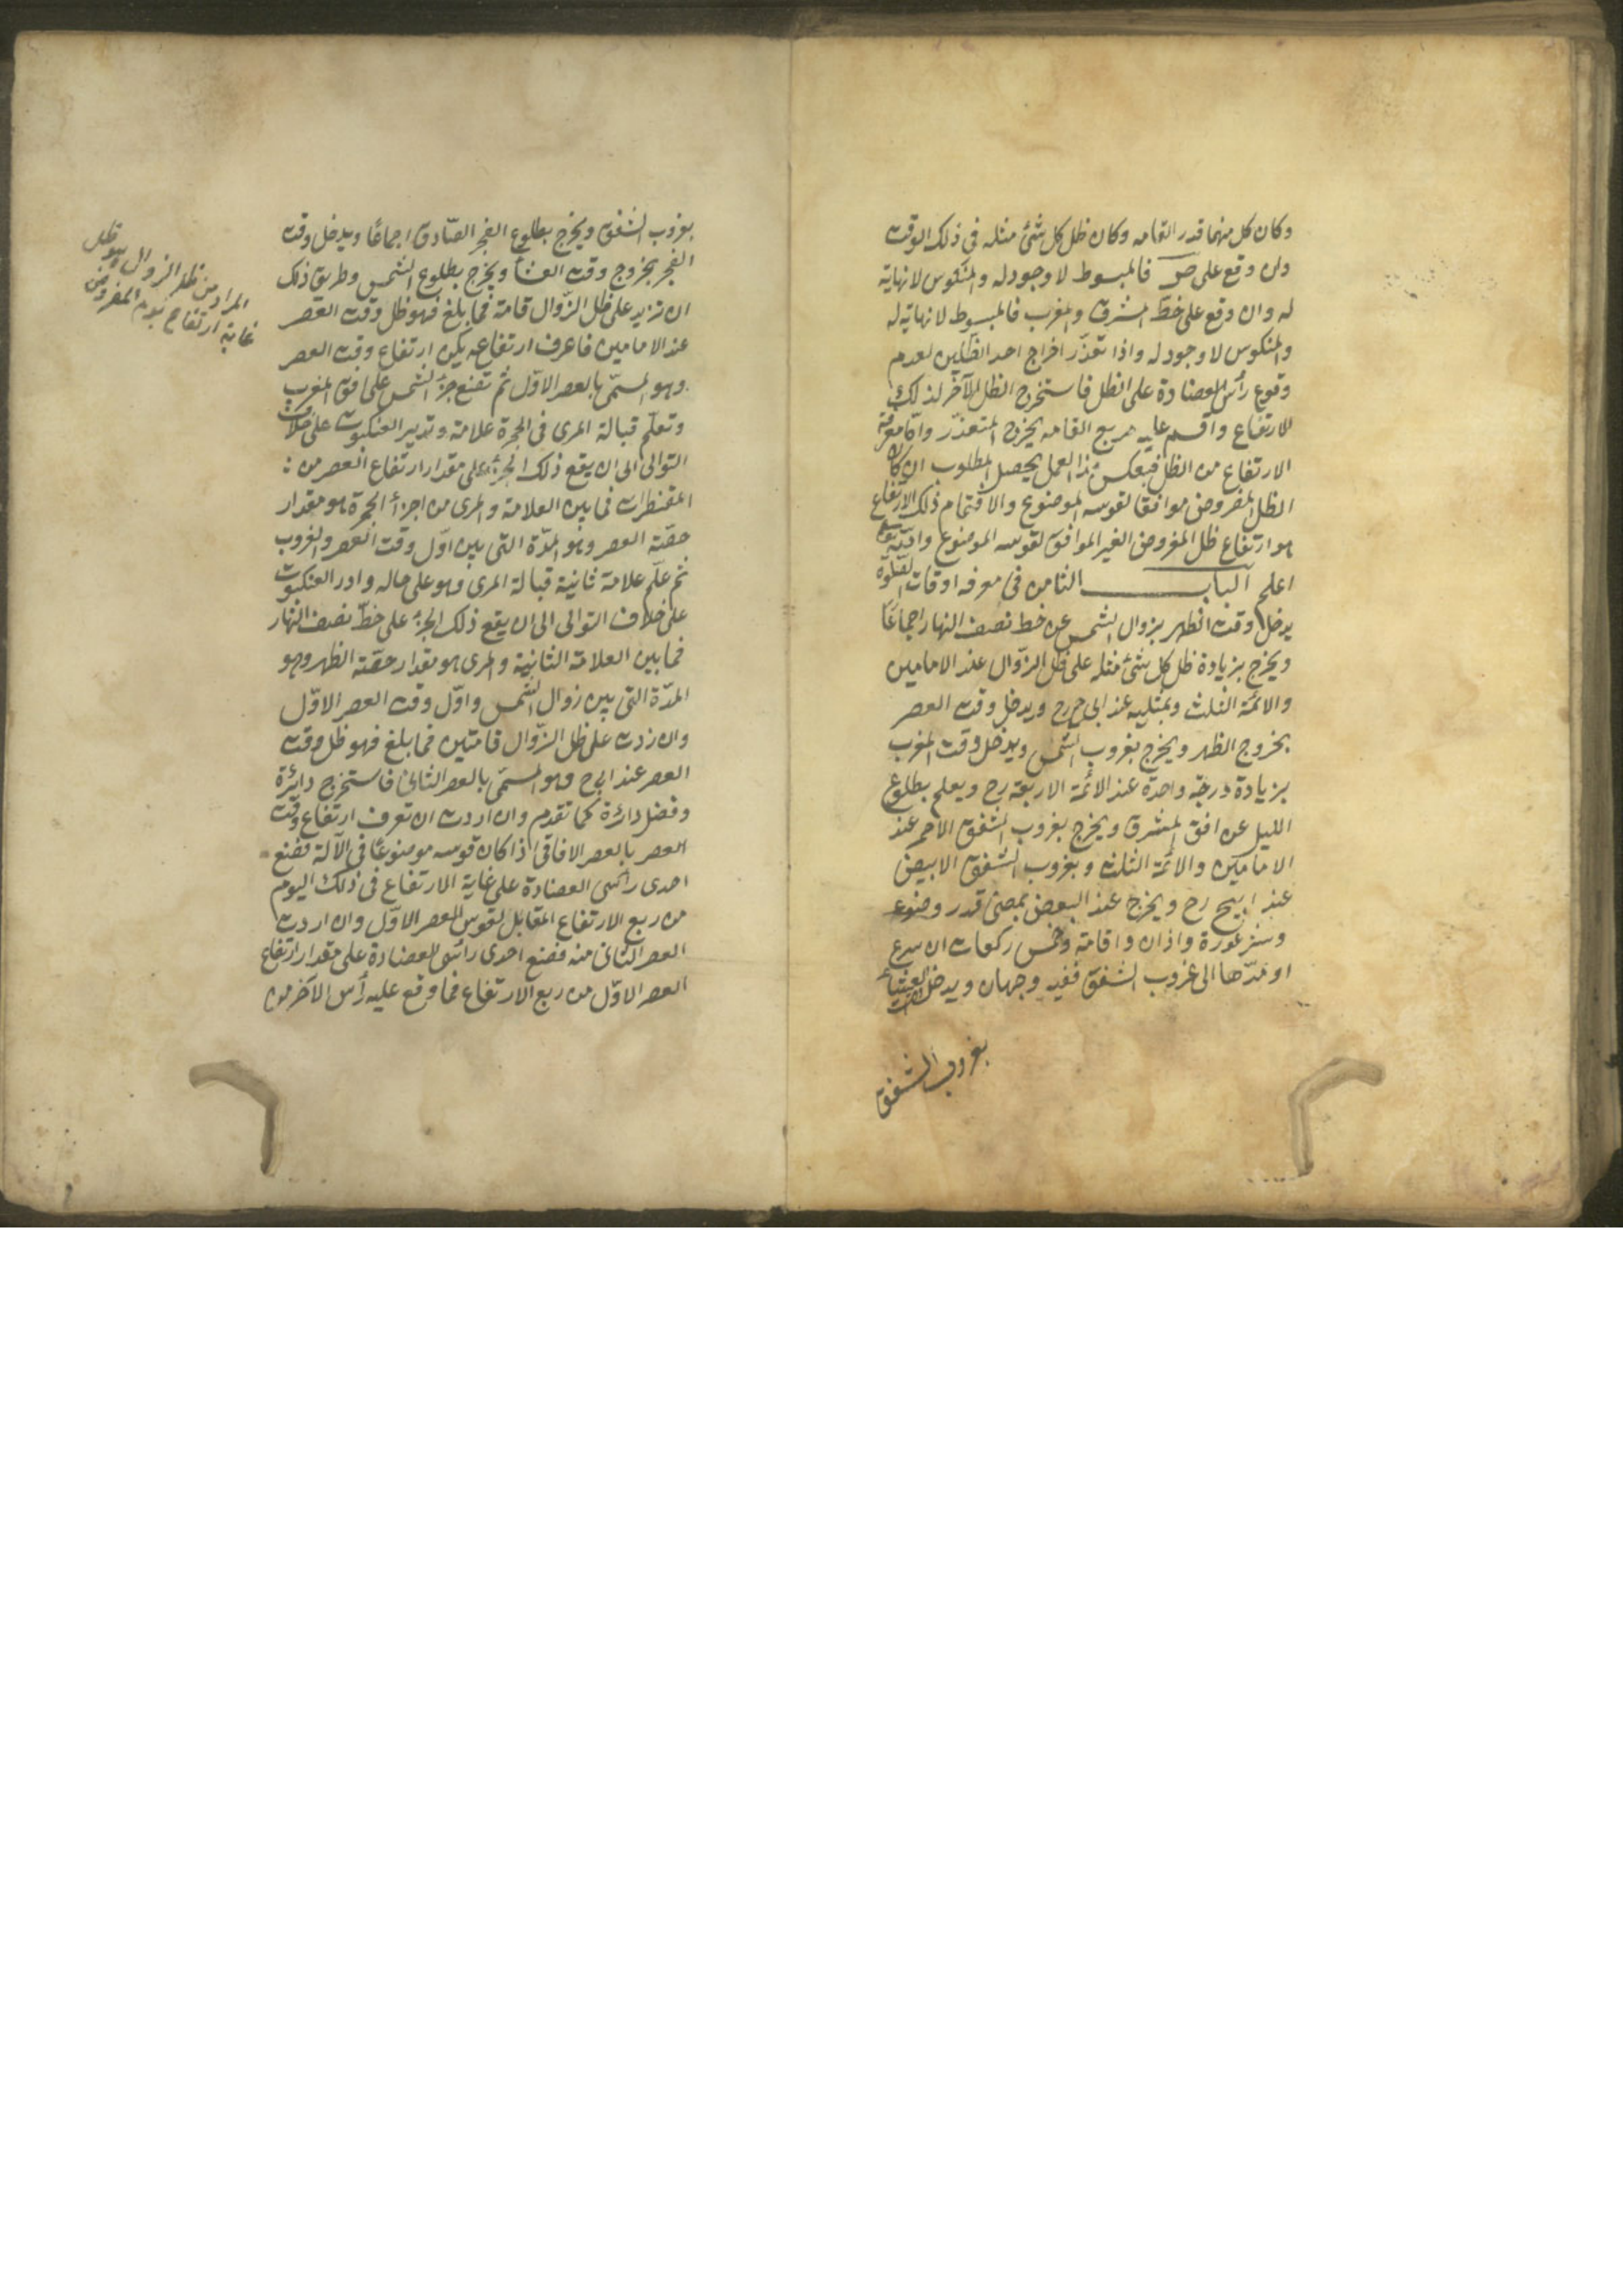 وكان كل منهما قدر القامه وكان ظل كل شئ مثله في ذلك الوقت
وان وقع على ص فالمبسوط لا وجود له والمنكوس لا نهاية
له وان وقع على خط المشرق والمغرب فالمبسوط لا نهاية له
والمنكوس لا وجود له واذا تعذّر اخراج احد الظلين لعدم
وقوع رأس العضادة على الظل فاستخرج الظل الآخر لذلك
الارتفاع واقسم عليه مربع القامه يخرج المتعذّر وأمّا معرفة
الارتفاع من الظل فبعكس هذا العمل يحصل المطلوب ان كان
الظل المفروض موافقا لقوسه الموضوع والا فتمام ذلك الارتفاع
هو ارتفاع ظل المفروض الغير الموافق لقوسه الموضوع والله تعالى
اعلم الباب الثامن في معرفه اوقات الصلوة
يدخل وقت الظهر بزوال الشمس عن خط نصف النهار اجماعًا
ويخرج بزيادة ظل كل شئ مثله على ظل الزّوال عند الامامين
والائمّة الثلث وبمثليه عند ابى ح رح ويدخل وقت العصر
بخروج الظهر ويخرج بغروب الشمس ويدخل وقت المغرب
بزيادة درجة واحدة عند الائمّة الاربعة رح ويعلم بطلوع
الليل عن افق المشرق ويخرج بغروب الشفق الاحمر عند
الامامين والائمّة الثلث وبغروب الشفق الابيض
عند ابيح رح ويخرج عند البعض بمضىّ قدر وضوء
وستر عورة واذان واقامة وخمس ركعات ان سرع
او مدّها الى غروب الشفق ففيه وجهان ويدخل العشاء
بغروب الشفق
بغروب الشفق ويخرج بطلوع الفجر الصّادق اجماعًا ويدخل وقت
الفجر بخروج وقت العشأ ويخرج بطلوع الشمس وطريق ذلك
ان تزيد على ظل الزّوال قامة فما بلغ فهو ظل وقت العصر
عند الامامين فاعرف ارتفاعه يكن ارتفاع وقت العصر
وهو المسمّى بالعصر الاوّل ثم تضع جزء الشمس على افق المغرب
وتعلّم قبالة المرى فى الحجرة علامة وتدير العنكبوت على خلاف
التوالى الى ان يقع ذلك الجزء على مقدار ارتفاع العصر من
المقنطرات فما بين العلامة والمرى من اجزأ الحجرة هو مقدار
حصّة العصر وهو المدّة التى بين اوّل وقت العصر والغروب
ثم علّم علامة ثانية قبالة المرى وهو على حاله وادر العنكبوت
على خلاف التوالى الى ان يقع ذلك الجزء على خطّ نصف النهار
فما بين العلامة الثانية والمرى هو مقدار حصّة الظهر وهو
المدّة التى بين زوال الشمس واوّل وقت العصر الاوّل
وان زدت على ظل الزّوال قامتين فما بلغ فهو ظل وقت
العصر عند ابى ح وهو المسمّى بالعصر الثانى فاستخرج دائرة
وفضل دائرة كما تقدم وان اردت ان تعرف ارتفاع وقت
العصر بالعصر الافاقى اذا كان قوسه موضوعًا فى الآلة فضع
احدى رأسى العضادة على غاية الارتفاع فى ذلك اليوم
من ربع الارتفاع المقابل لقوس العصر الاوّل وان اردت
العصر الثانى منه فضع احدى رأسى العضادة على مقدار ارتفاع
العصر الاوّل من ربع الارتفاع فما وقع عليه رأس الآخر من
المراد من ظل الزوال هو ظل
غاية ارتفاع يوم المفروض